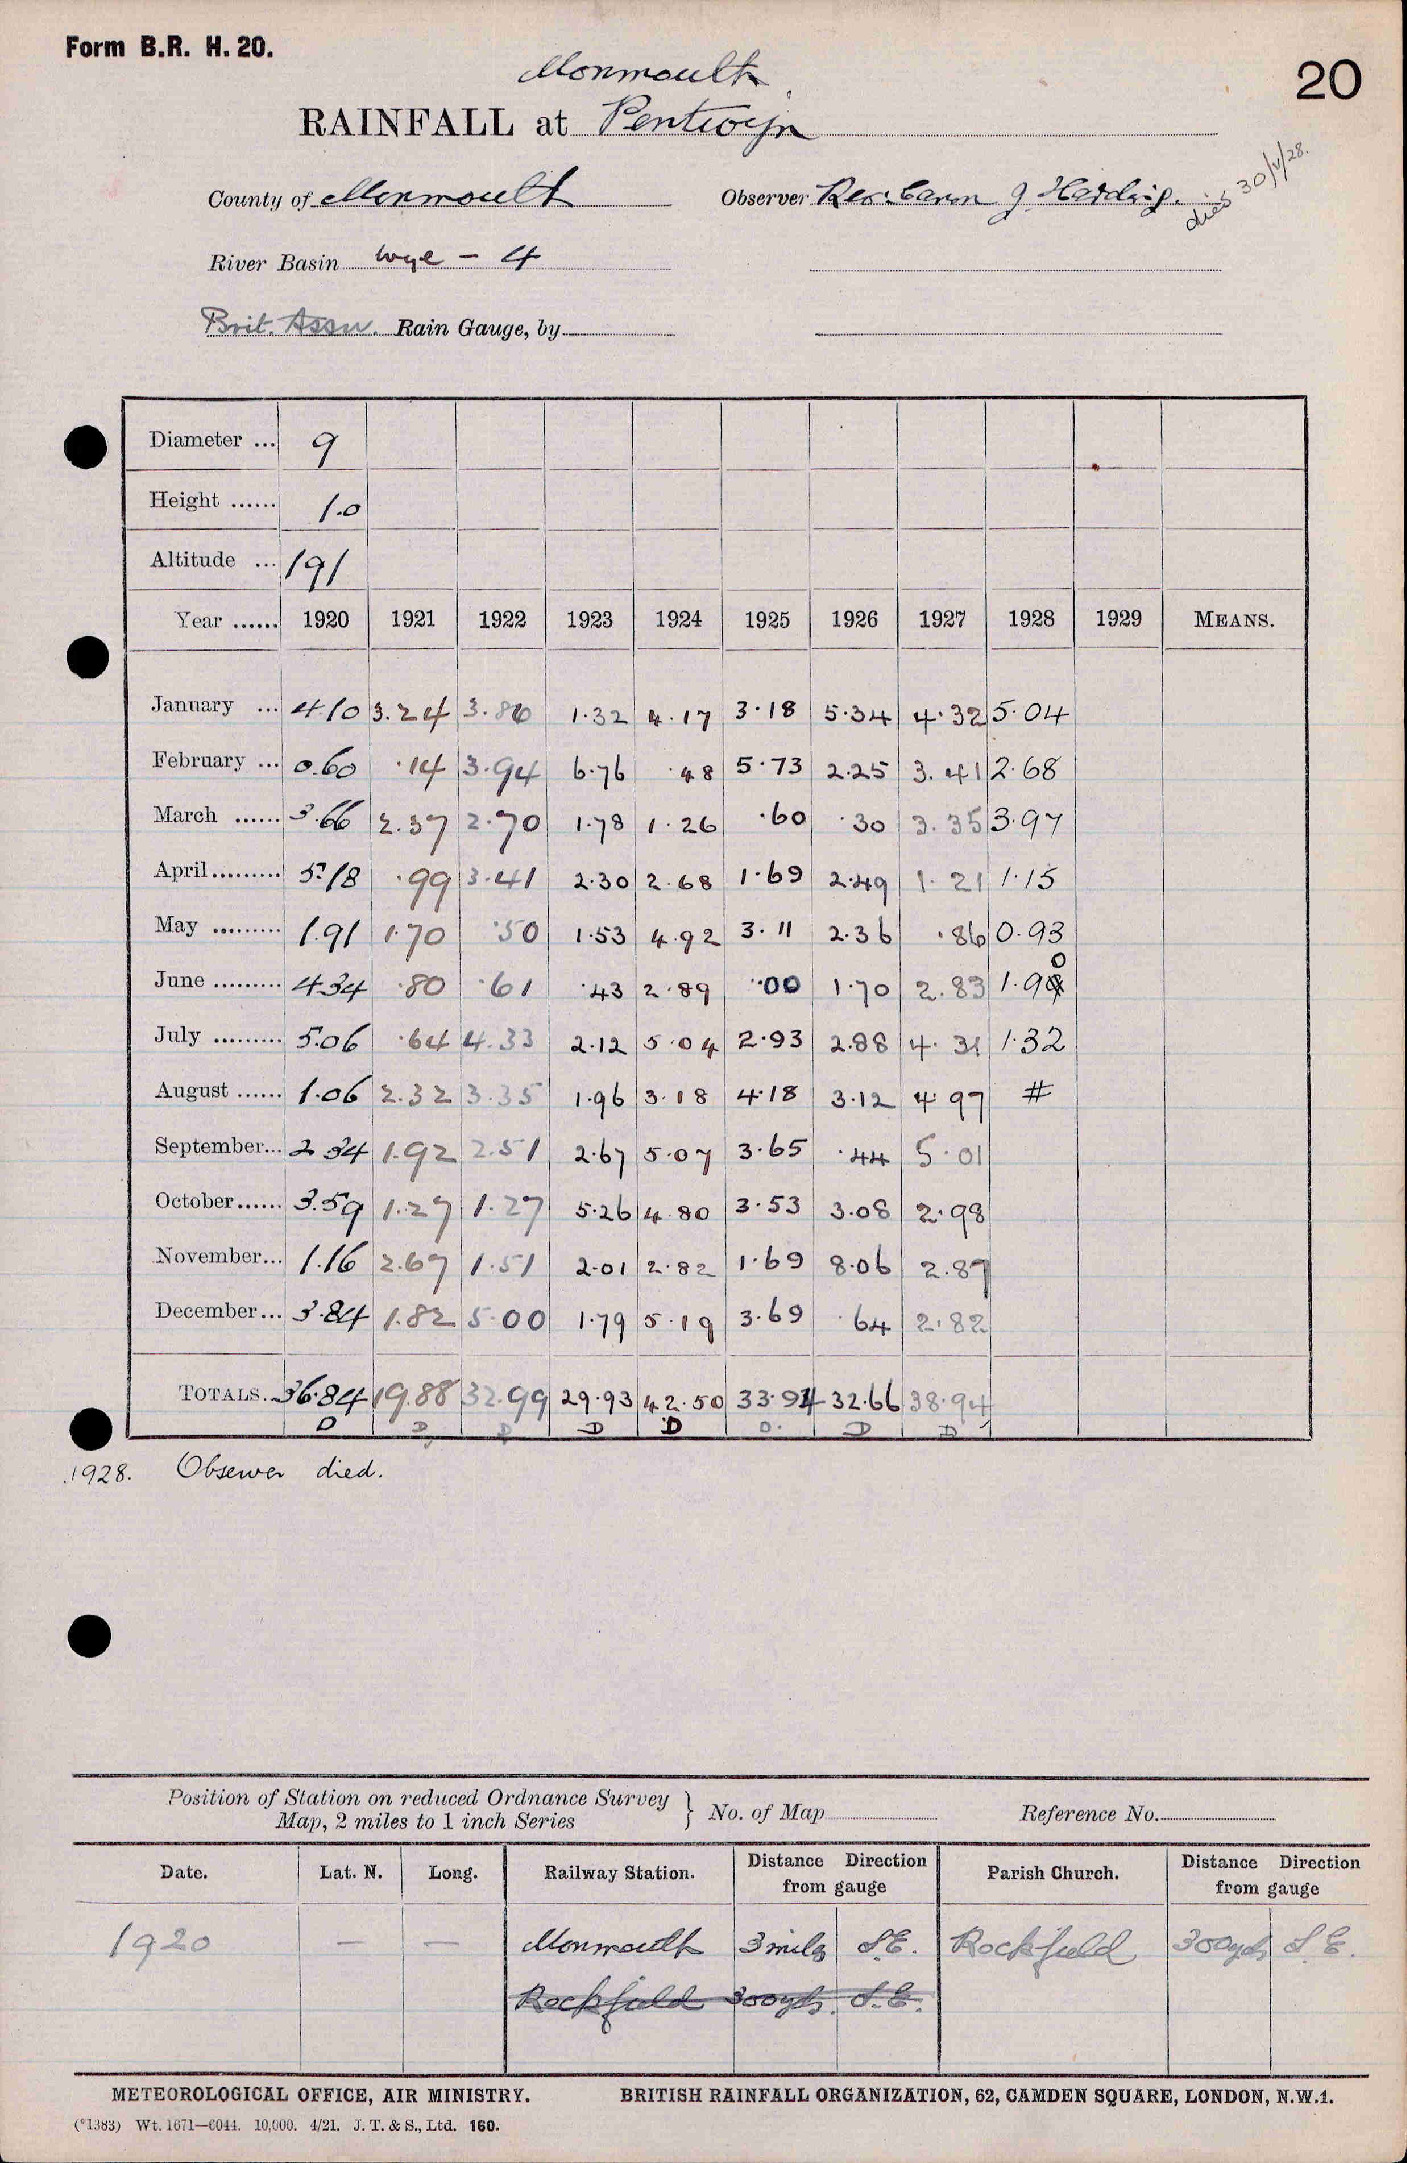 Form B.R. H. 20.
20
Monmouth
RAINFALL at Pentwyn
died 30/V/28.
County of Monmouth Observer Rev. Canon J Harding.
River Basin Wye - 4
Brit. Assn. Rain Gauge, by
Diameter ... 9
Height ...... 1.0
Altitude ... 191
Year ...... 1920 1921 1922 1923 1924 1925 1926 1927 1928 1929 MEANS.
January ... 4.10 3.24 3.86 1.32 4.17 3.18 5.34 4.32 5.04
February ... 0.60 .14 3.94 6.76 .48 5.73 2.25 3.41 2.68
March ...... 3.66 2.37 2.70 1.78 1.26 .60 .30 3.35 3.97
April ......... 5.18 .99 3.41 2.30 2.68 1.69 2.49 1.21 1.15
May ......... 1.91 1.70 .50 1.53 4.92 3.11 2.36 .86 0.93
June ......... 4.34 .80 .61 .43 2.89 .00 1.70 2.83 1.90
July ......... 5.06 .64 4.33 2.12 5.04 2.93 2.88 4.31 1.32
August ...... 1.06 2.32 3.35 1.96 3.18 4.18 3.12 4.97 #
September... 2.34 1.92 2.51 2.67 5.07 3.65 .44 5.01
October...... 3.59 1.27 1.27 5.26 4.80 3.53 3.08 2.98
November... 1.16 2.67 1.51 2.01 2.82 1.69 8.06 2.87
December... 3.84 1.82 5.00 1.79 5.19 3.69 .64 2.82
TOTALS... 36.84 19.88 32.99 29.93 42.50 33.94 32.66 38.94
D D D D D D. D D
1928. Observer died.
Position of Station on reduced Ordnance Survey
Map, 2 miles to 1 inch Series } No. of Map Reference No.
Date. Lat. N. Long. Railway Station. Distance Direction from gauge Parish Church. Distance Direction from gauge
1920 — — Monmouth 3 miles S.E. Rockfield 300yds S.E.
Rockfield 300yds. S.E.
METEOROLOGICAL OFFICE, AIR MINISTRY. BRITISH RAINFALL ORGANIZATION, 62, CAMDEN SQUARE, LONDON, N.W.1.
(*1383) Wt. 1671—6044. 10,000. 4/21. J. T. & S., Ltd. 160.